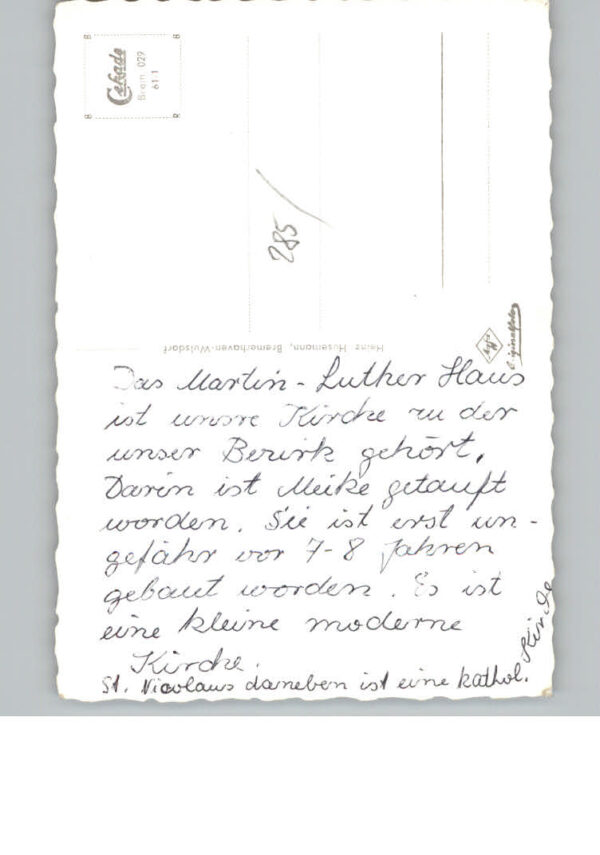 Cekade
Brem 029
61:1
285
Heinz Husemann, Bremerhaven-Wulsdorf
Agfa
Originalfoto
Das Martin-Luther Haus
ist unsre Kirche zu der
unser Bezirk gehört.
Darin ist Meike getauft
worden. Sie ist erst un-
gefähr vor 7-8 Jahren
gebaut worden. Es ist
eine kleine moderne
Kirche.
St. Nicolaus daneben ist eine kathol. Kirche